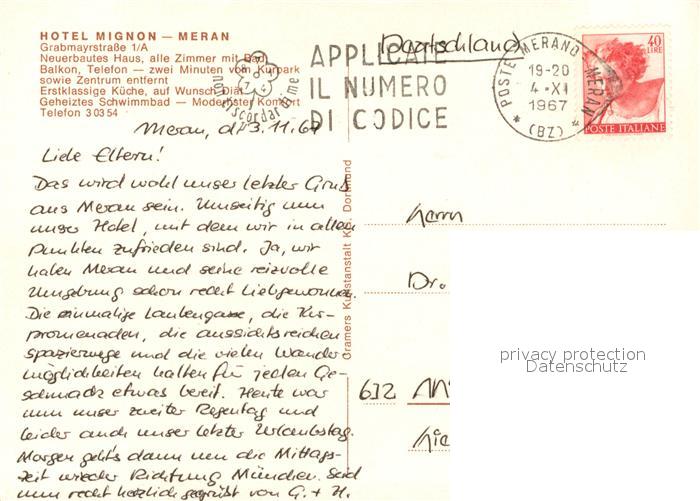 HOTEL MIGNON — MERAN
Grabmayrstraße 1/A
Neuerbautes Haus, alle Zimmer mit Bad,
Balkon, Telefon — zwei Minuten vom Kurpark
sowie Zentrum entfernt
Erstklassige Küche, auf Wunsch Diät
Geheiztes Schwimmbad — Modernster Komfort
Telefon 3 03 54
non ti scordar di me
APPLICATE
IL NUMERO
DI CODICE
Deutschland
POSTE MERANO - MERAN
19-20
4-XI
1967
(BZ)
40
LIRE
POSTE ITALIANE
Meran, d. 3.11.67
Liebe Eltern!
Das wird wohl unser letzter Gruß
aus Meran sein. Umseitig nun
unser Hotel, mit dem wir in allen
Punkten zufrieden sind. Ja, wir
haben Meran und seine reizvolle
Umgebung schon recht liebgewonnen.
Die einmalige Laubengasse, die Kur-
promenaden, die aussichtsreichen
Spazierwege und die vielen Wander
möglichkeiten halten für jeden Ge-
schmack etwas bereit. Heute war
nun unser zweiter Regentag und
leider auch unser letzter Urlaubstag.
Morgen geht's dann um die Mittags-
zeit wieder Richtung München. Seid
nun recht herzlich gegrüßt von G. + H.
Cramers Kunstanstalt KG. Dortmund
Herrn
Dr.
632
privacy protection
Datenschutz